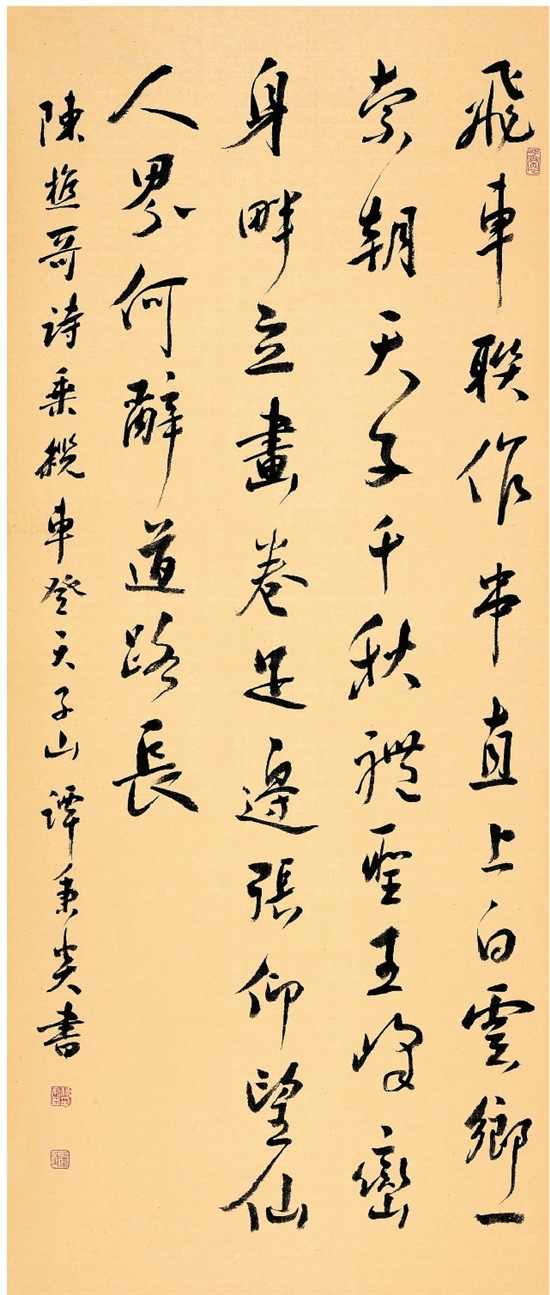 飛車聯作串直上白雲鄉一
索朝天子千秋禮聖王峰巒
身畔立畫卷足邊張仰望仙
人界何辭道路長
陳樵哥詩乘纜車登天子山譚秉炎書